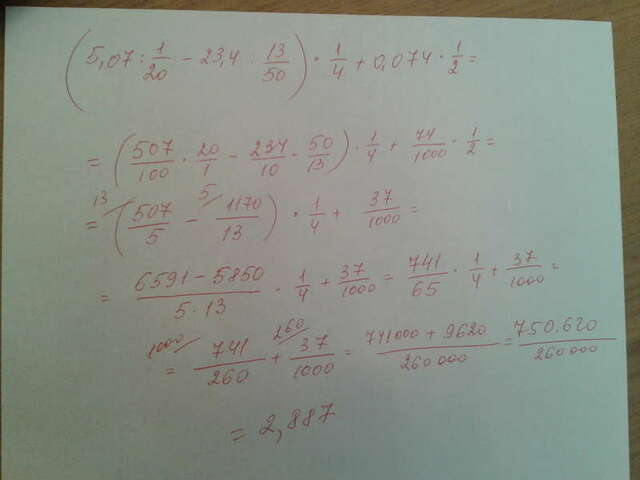 (5,07 : 1/20 - 23,4 : 13/50) · 1/4 + 0,074 · 1/2 =
= (507/100 · 20/1 - 234/10 · 50/13) · 1/4 + 74/1000 · 1/2 =
= (13/ 507/5 - 5/ 1170/13) · 1/4 + 37/1000 =
= 6591 - 5850/5 · 13 · 1/4 + 37/1000 = 741/65 · 1/4 + 37/1000 =
= 1000/ 741/260 + 260/ 37/1000 = 741000 + 9620/260 000 = 750.620/260 000
= 2,887